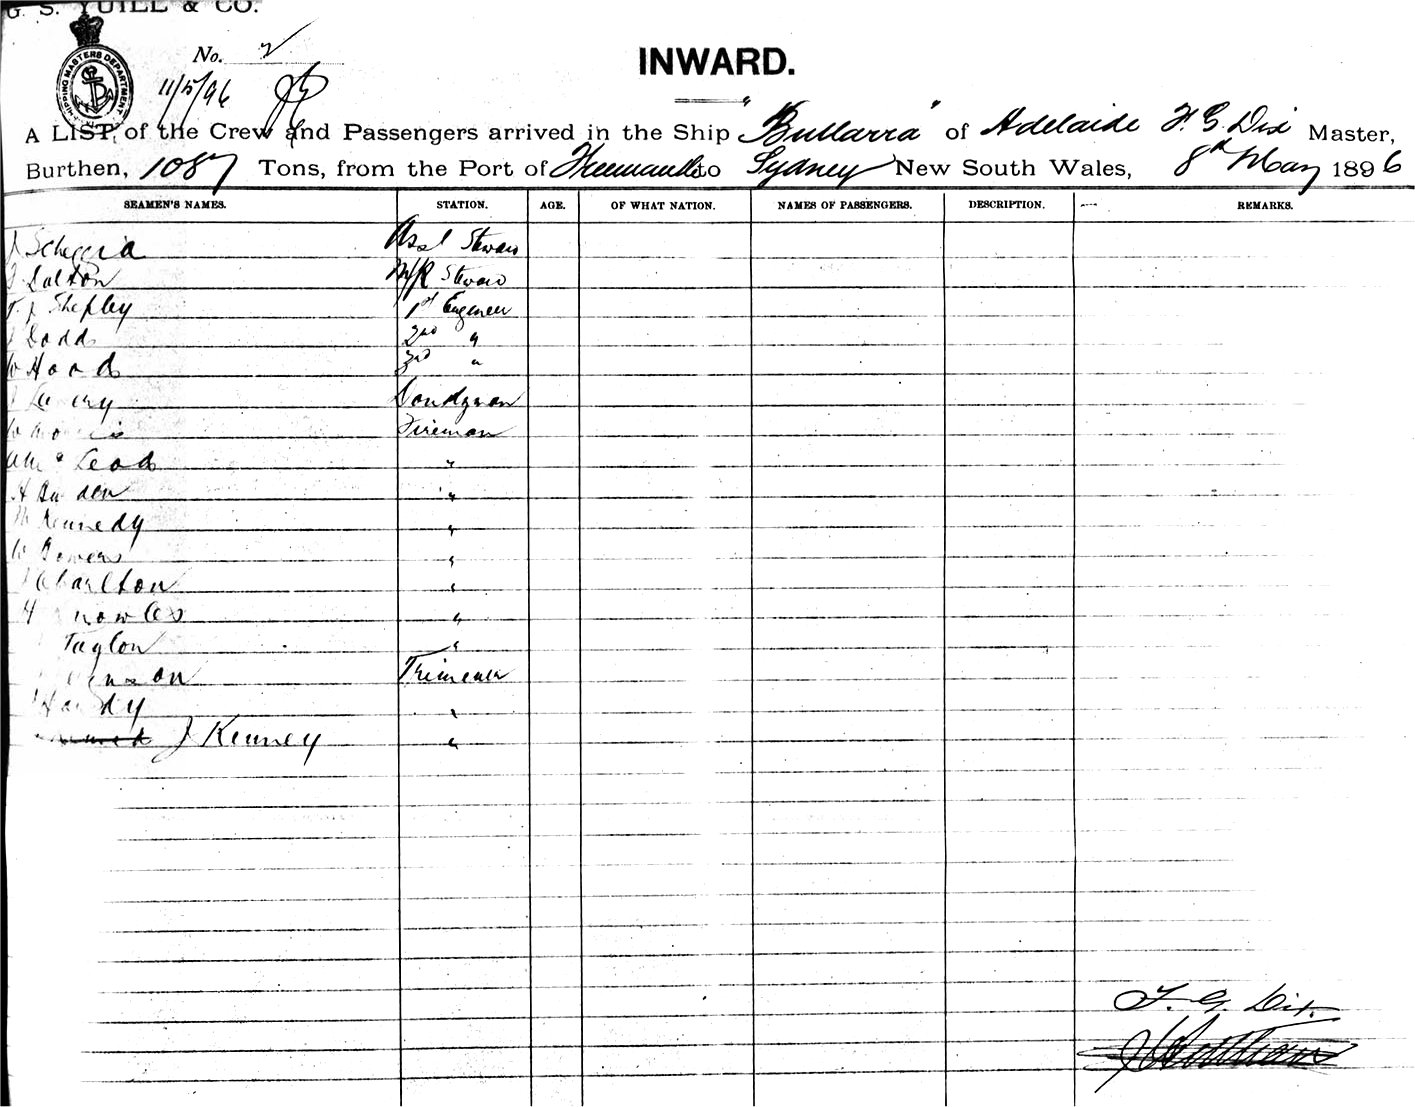 G. S. YUILL & CO.
SHIPPING MASTERS DEPARTMENT
No. 2
11/5/96
INWARD.
A LIST, of the Crew and Passengers arrived in the Ship "Bullarra" of Adelaide F. G. Dix Master,
Burthen, 1087 Tons, from the Port of Fremantle to Sydney New South Wales, 8th May 1896
SEAMEN'S NAMES. STATION. AGE. OF WHAT NATION. NAMES OF PASSENGERS. DESCRIPTION. REMARKS.
J Scheggia Asst Steward
Dalton M/R Steward
T. J Shepley 1st Engineer
J Dodds 2nd "
W Hood 3rd "
Donkyman
W Fireman
"
A "
M Kennedy "
W Bowers "
J Charlton "
H Knowles "
Taylor "
Trimmer
Hardy "
J Kenney "
F. G. Dix